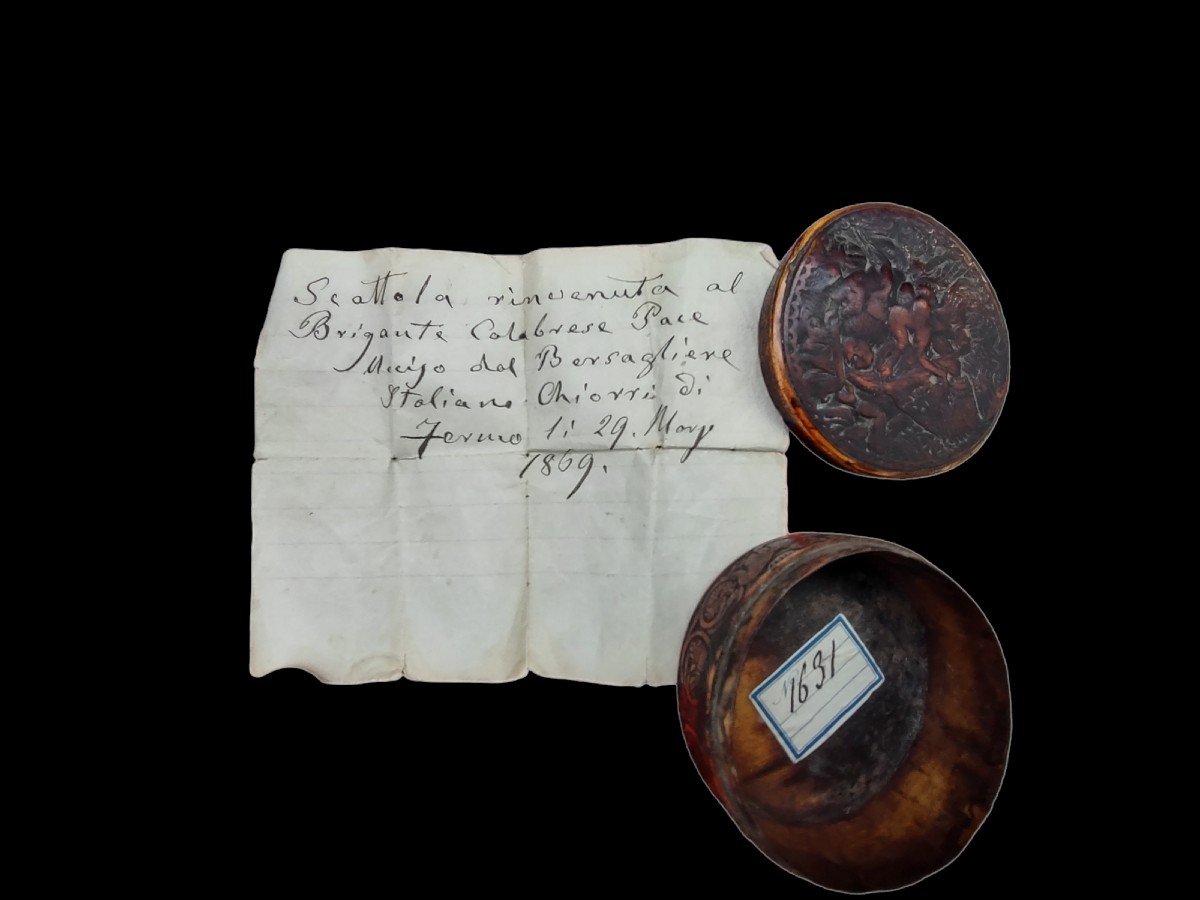 Scattola rinvenuta al
Brigante Calabrese Pace
Ucciso dal Bersagliere
Italiano Chiorri di
Fermo li 29. Marzo
1869.
N 1631